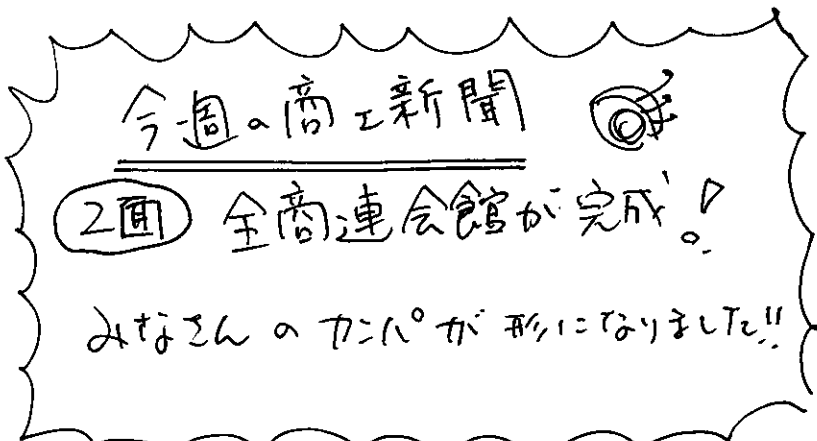 今週の商工新聞
2面 全商連会館が完成!
みなさんのカンパが形になりました!!